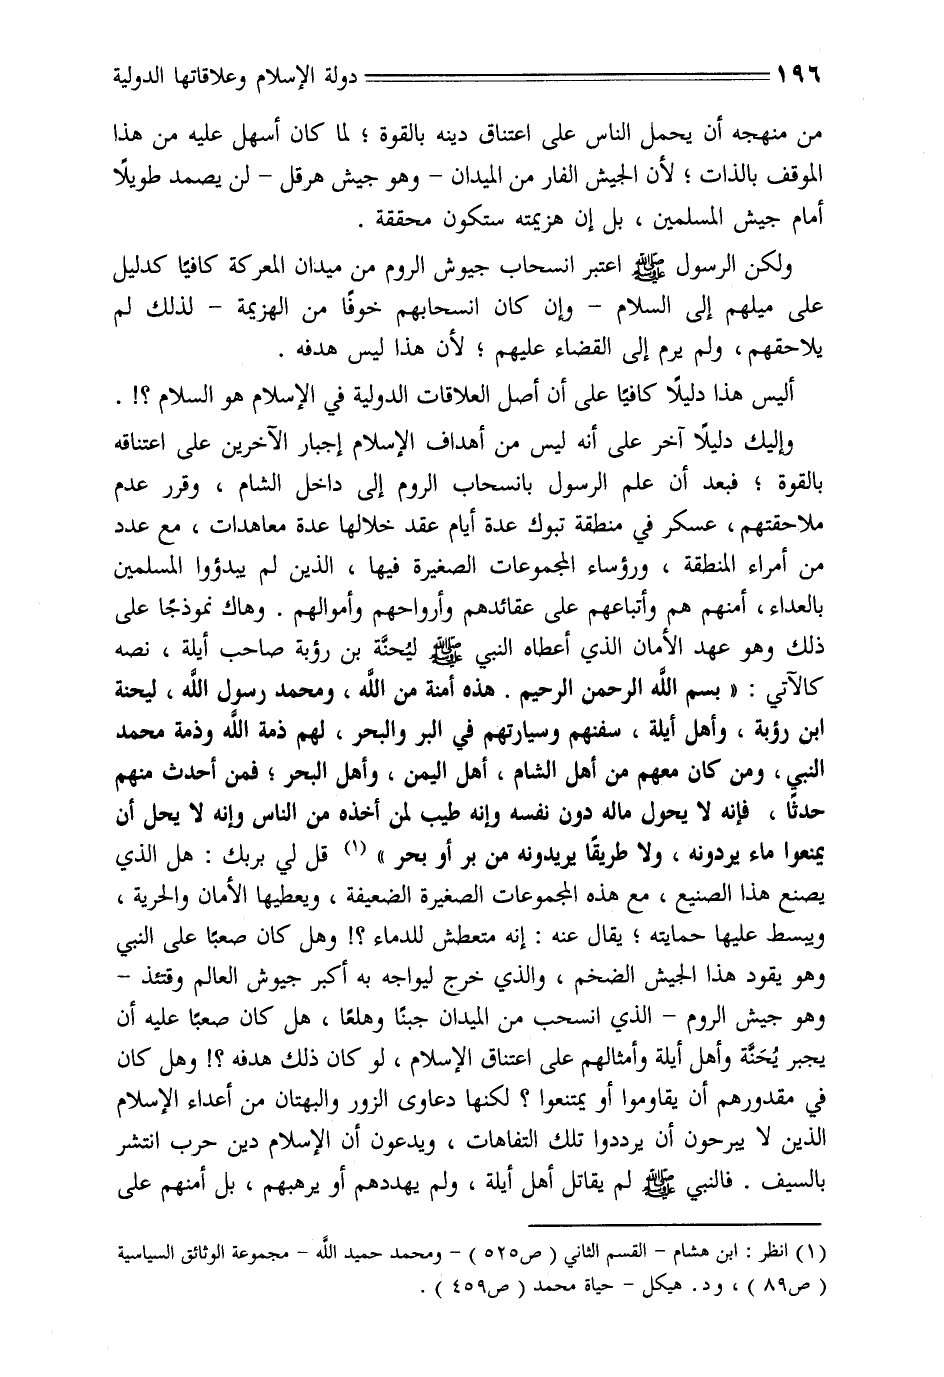 ١٩٦ دولة الإسلام وعلاقاتها الدولية
من منهجه أن يحمل الناس على اعتناق دينه بالقوة ؛ لما كان أسهل عليه من هذا
الموقف بالذات ؛ لأن الجيش الفار من الميدان – وهو جيش هرقل – لن يصمد طويلًا
أمام جيش المسلمين ، بل إن هزيمته ستكون محققة .
ولكن الرسول ﷺ اعتبر انسحاب جيوش الروم من ميدان المعركة كافيًا كدليل
على ميلهم إلى السلام – وإن كان انسحابهم خوفًا من الهزيمة – لذلك لم
يلاحقهم ، ولم يرم إلى القضاء عليهم ؛ لأن هذا ليس هدفه .
أليس هذا دليلًا كافيًا على أن أصل العلاقات الدولية في الإسلام هو السلام ؟! .
وإليك دليلًا آخر على أنه ليس من أهداف الإسلام إجبار الآخرين على اعتناقه
بالقوة ؛ فبعد أن علم الرسول بانسحاب الروم إلى داخل الشام ، وقرر عدم
ملاحقتهم ، عسكر في منطقة تبوك عدة أيام عقد خلالها عدة معاهدات ، مع عدد
من أمراء المنطقة ، ورؤساء المجموعات الصغيرة فيها ، الذين لم يبدؤوا المسلمين
بالعداء ، أمنهم هم وأتباعهم على عقائدهم وأرواحهم وأموالهم . وهاك نموذجًا على
ذلك وهو عهد الأمان الذي أعطاه النبي ﷺ ليُحنَّة بن رؤبة صاحب أيلة ، نصه
كالآتي : « بسم اللَّه الرحمن الرحيم . هذه أمنة من اللَّه ، ومحمد رسول اللَّه ، ليحنة
ابن رؤبة ، وأهل أيلة ، سفنهم وسيارتهم في البر والبحر ، لهم ذمة اللَّه وذمة محمد
النبي ، ومن كان معهم من أهل الشام ، أهل اليمن ، وأهل البحر ؛ فمن أحدث منهم
حدثًا ، فإنه لا يحول ماله دون نفسه وإنه طيب لمن أخذه من الناس وإنه لا يحل أن
يمنعوا ماء يردونه ، ولا طريقًا يريدونه من بر أو بحر » (١) قل لي بربك : هل الذي
يصنع هذا الصنيع ، مع هذه المجموعات الصغيرة الضعيفة ، ويعطيها الأمان والحرية ،
ويبسط عليها حمايته ؛ يقال عنه : إنه متعطش للدماء ؟! وهل كان صعبًا على النبي
وهو يقود هذا الجيش الضخم ، والذي خرج ليواجه به أكبر جيوش العالم وقتئذ –
وهو جيش الروم – الذي انسحب من الميدان جبنًا وهلعًا ، هل كان صعبًا عليه أن
يجبر يُحَنَّة وأهل أيلة وأمثالهم على اعتناق الإسلام ، لو كان ذلك هدفه ؟! وهل كان
في مقدورهم أن يقاوموا أو يمتنعوا ؟ لكنها دعاوى الزور والبهتان من أعداء الإسلام
الذين لا يبرحون أن يرددوا تلك التفاهات ، ويدعون أن الإسلام دين حرب انتشر
بالسيف . فالنبي ﷺ لم يقاتل أهل أيلة ، ولم يهددهم أو يرهبهم ، بل أمنهم على
(١) انظر : ابن هشام – القسم الثاني ( ص٥٢٥ ) – ومحمد حميد اللَّه – مجموعة الوثائق السياسية
( ص٨٩ ) ، ود. هيكل – حياة محمد ( ص٤٥٩ ) .